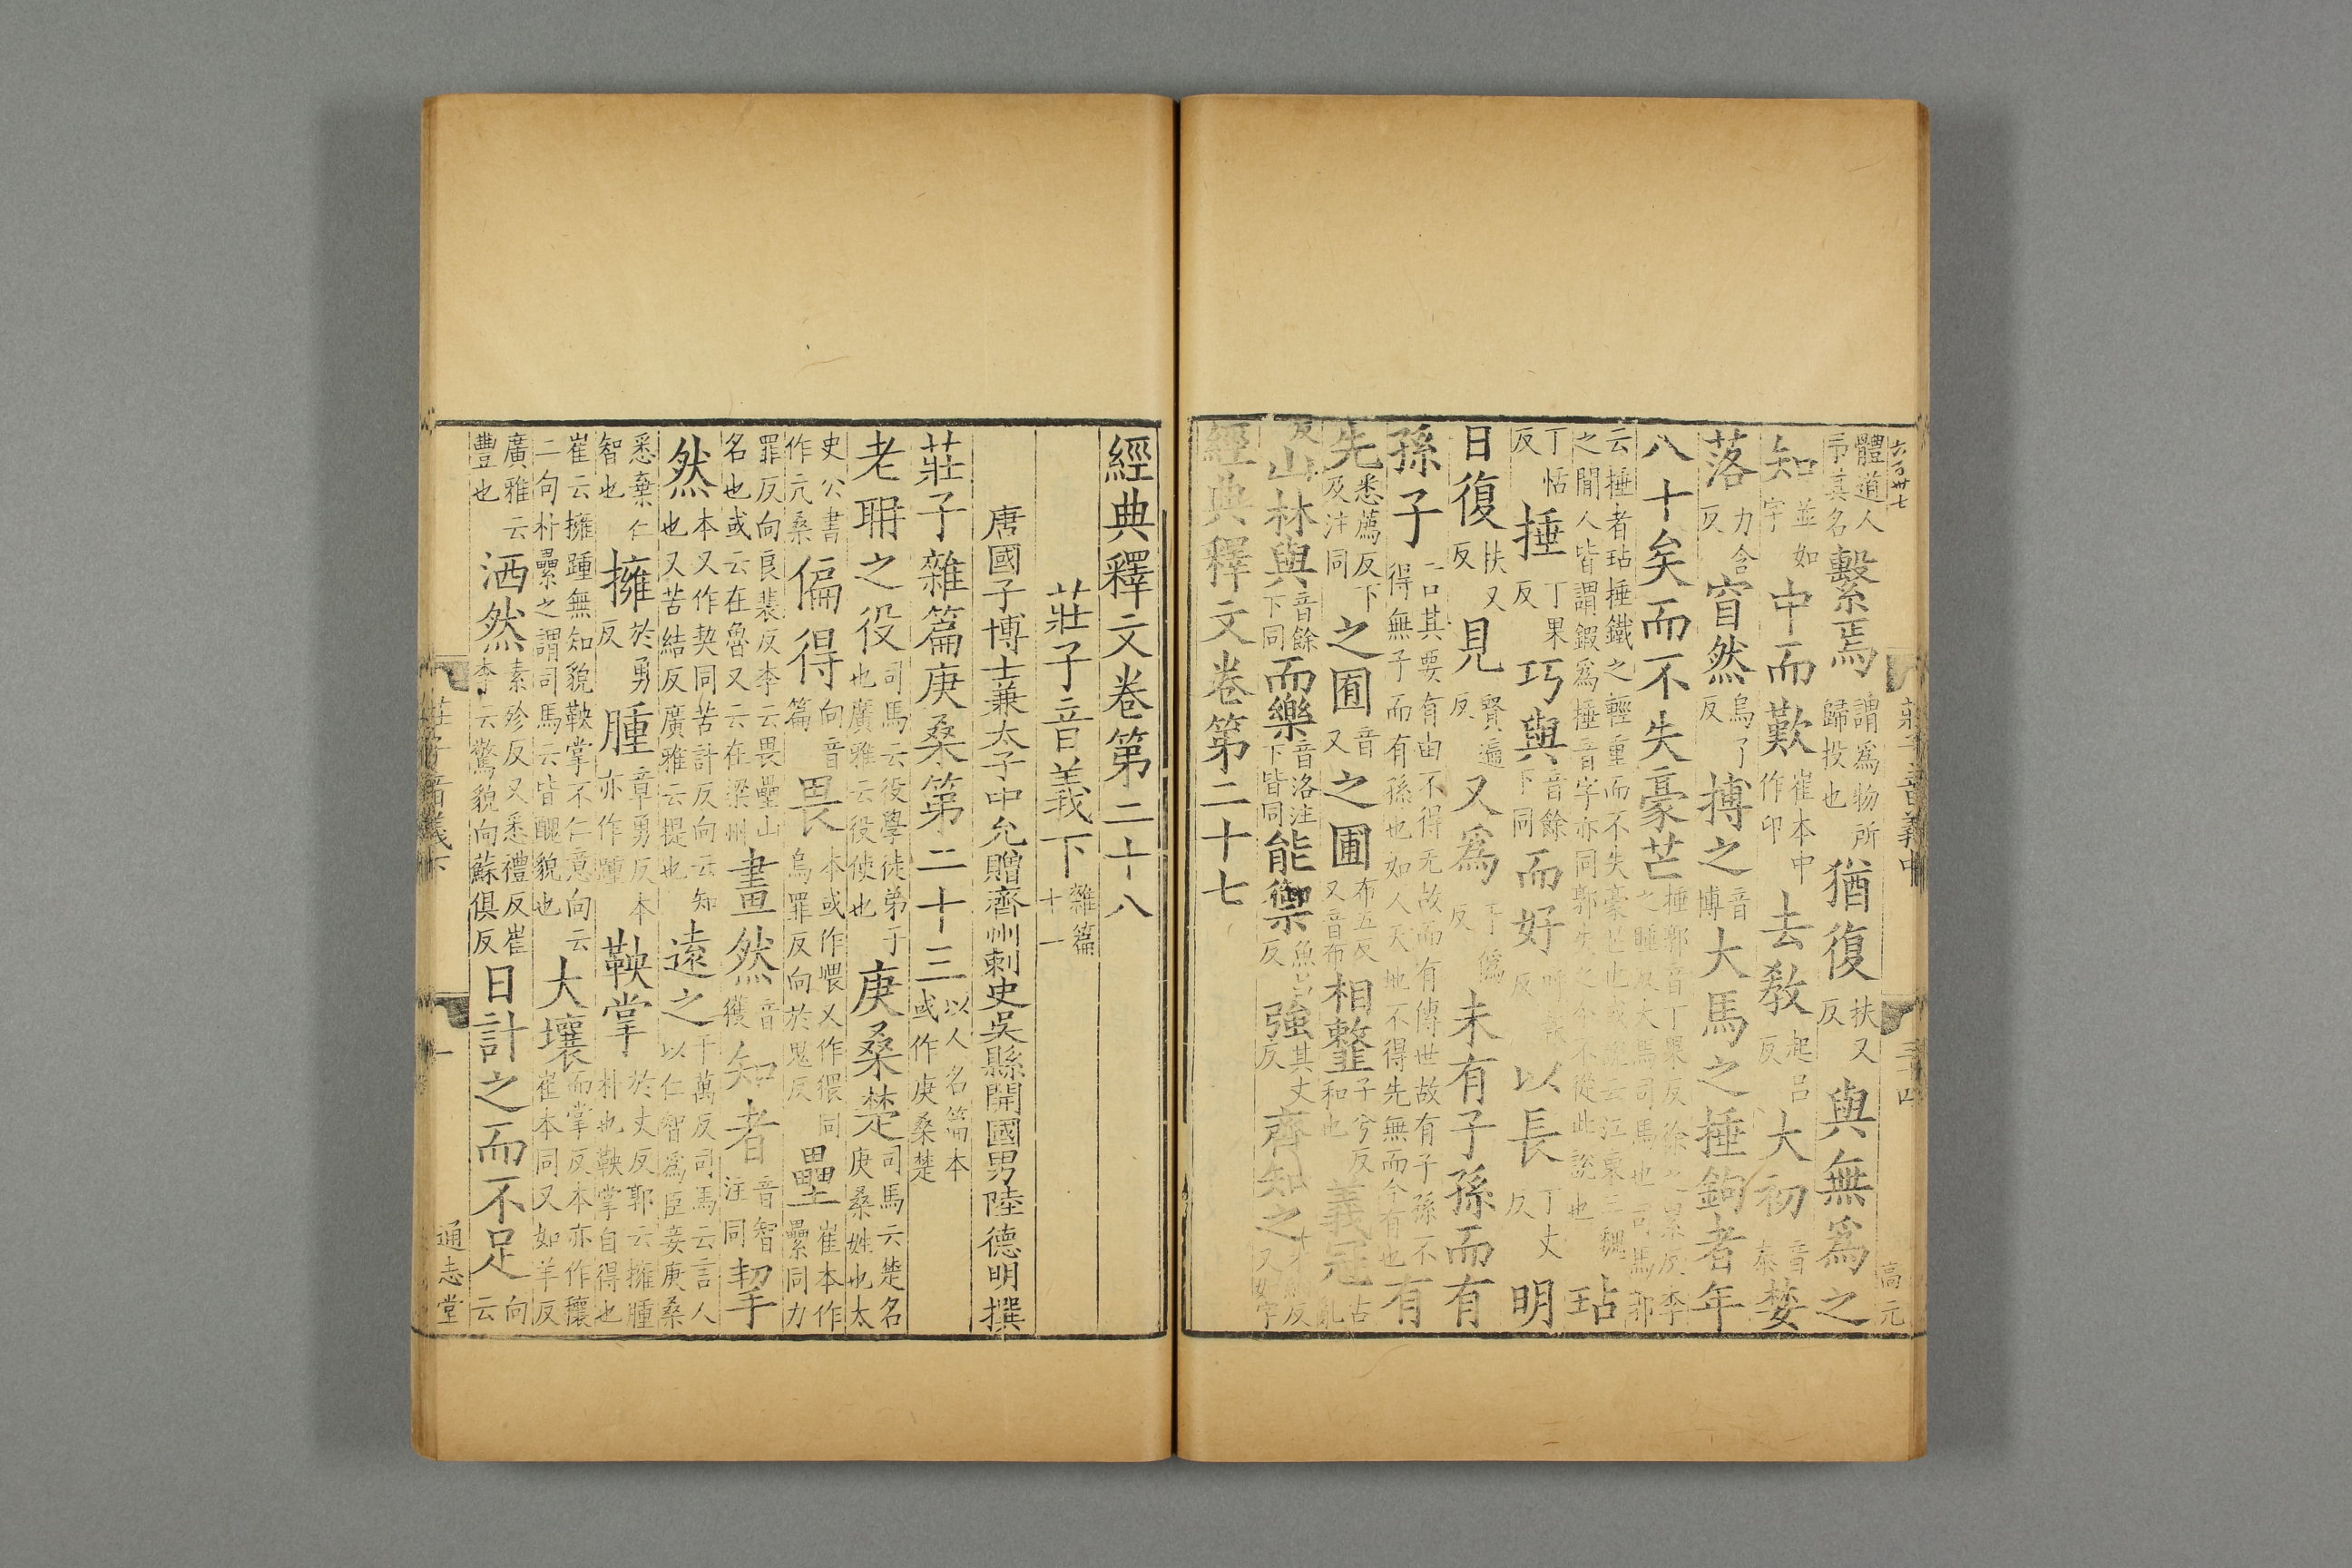 六百卅七
莊子音義中
三十四
高元
體道人
弔真名
繫焉
謂爲物所
歸投也
猶復
扶又
反
與無爲之
知
並如
字
中而歎
崔本中
作卬
去教
起呂
反
大初
音
泰
婪
落
力含
反
窅然
烏了
反
搏之
音
博
大馬之捶鉤者年
八十矣而不失豪芒
捶郭音丁果反徐之累反李
之睡反大馬司馬也司馬郭
云捶者玷捶鐵之輕重而不失豪芒也或說云江東三魏
之閒人皆謂鍛爲捶音字亦同郭失之今不從此說也
玷
丁恬
反
捶
丁果
反
巧與
音餘
下同
而好
呼報
反
以長
丁丈
反
明
日復
扶又
反
見
賢遍
反
又爲
于僞
反
未有子孫而有
孫子
一口其要有由不得无故而有傳世故有子孫不
得無子而有孫也如人天地不得先無而今有也
有
先
悉薦反下
及注同
之囿
音
又
之圃
布五反
又音布
相䪠
子兮反
和也
義冠
古
亂
反
山林與
音餘
下同
而樂
音洛注
下皆同
能禦
魚呂
反
強
其丈
反
齊知之
才細反
又如字
經典釋文卷第二十七
經典釋文卷第二十八
莊子音義下
雜篇
十一
唐國子博士兼太子中允贈齊州刺史吳縣開國男陸德明撰
莊子雜篇庚桑第二十三
以人名篇本
或作庚桑楚
老聃之役
司馬云役學徒弟子
也廣雅云役使也
庚桑楚
司馬云楚名
庚桑姓也太
史公書
作亢桑
偏得
向音
篇
畏
本或作喂又作猥同
烏罪反向於鬼反
壘
崔本作
纍同力
罪反向良裴反李云畏壘山
名也或云在魯又云在梁州
畫然
音
獲
知者
音智
注同
挈
然
本又作契同苦計反向云知
也又苦結反廣雅云提也
遠之
于萬反司馬云言人
以仁智爲臣妾庚桑
悉棄仁
智也
擁
於勇
反
腫
章勇反本
亦作踵
鞅掌
於丈反郭云擁腫
朴也鞅掌自得也
崔云擁踵無知貌鞅掌不仁意向云
二句朴纍之謂司馬云皆醜貌也
大壤
而掌反本亦作穰
崔本同又如羊反
廣雅云
豐也
洒然
素殄反又悉禮反崔
李云驚貌向蘇俱反
日計之而不足
向
云
莊子音義下
一
通志堂